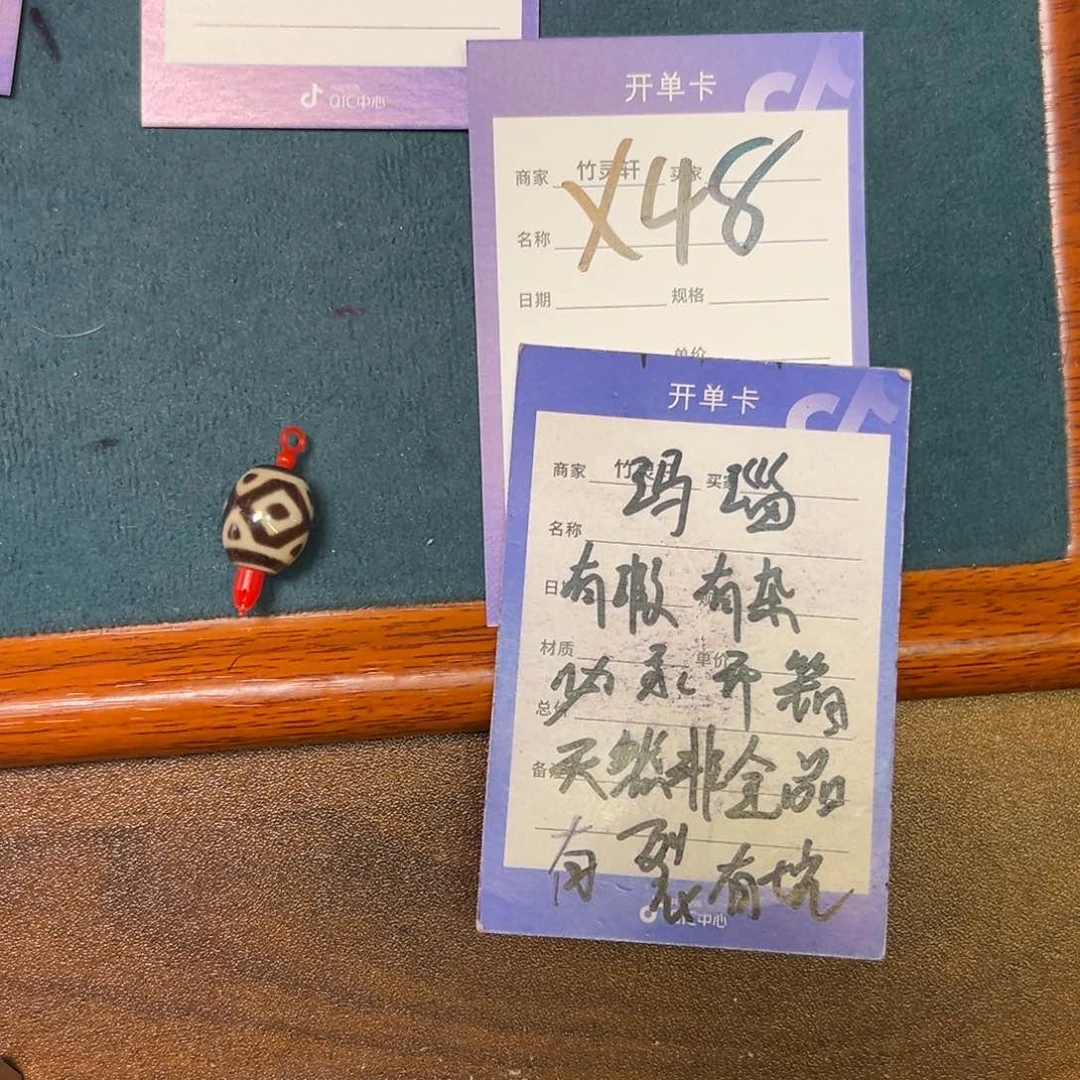 QIC中心
开单卡
商家 竹灵轩 买家
X48
名称
日期 规格
单价
开单卡
商家 竹 买
玛瑙
名称
有瑕有杂
材质 单价
天然非全品
备
有裂有坑
QIC中心